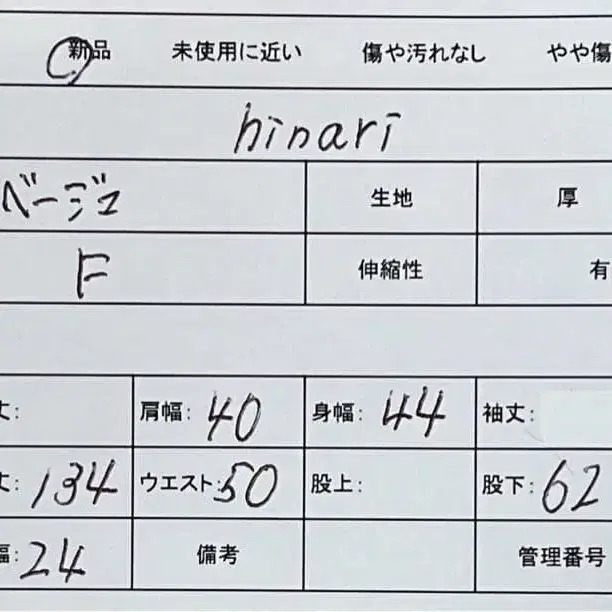 新品 未使用に近い 傷や汚れなし やや傷
hinari
ベージュ 生地 厚
F 伸縮性 有
丈: 肩幅: 40 身幅: 44 袖丈:
丈: 134 ウエスト: 50 股上: 股下: 62
幅: 24 備考 管理番号